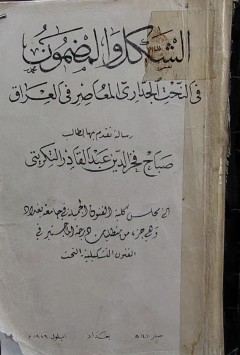 الشكل والمضمون
في النحت الجداري المعاصر في العراق
رسالة تقدم بها الطالب
صباح فخرالدين عبدالقادر التكريتي
الى مجلس كلية الفنون الجميلة في جامعة بغداد
وهي جزء من متطلبات درجة الماجستير في
الفنون التشكيلية / النحت
بغداد
ايلول